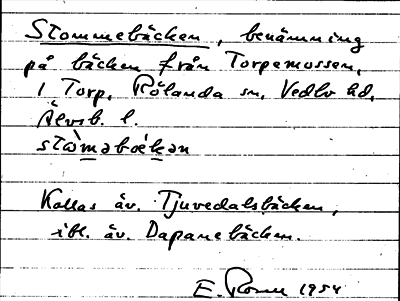 Stommebäcken, benämning
på bäcken från Torpemossen,
i Torp, Rölanda sn, Vedbo hd,
Älvsb. l.
Kallas äv. Tjuvedalsbäcken,
ibl. äv. Dapanebäcken.
E. 1954